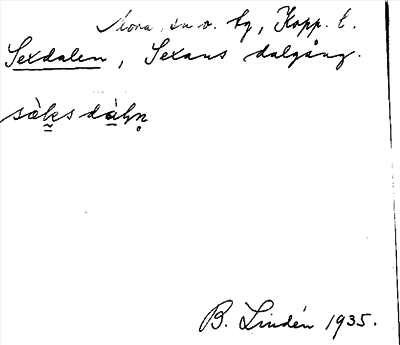 Mora, sn o. hg, Kopp. l.
Sexdalen, Sexans dalgång.
sàksdàln̥
B. Lindén 1935.